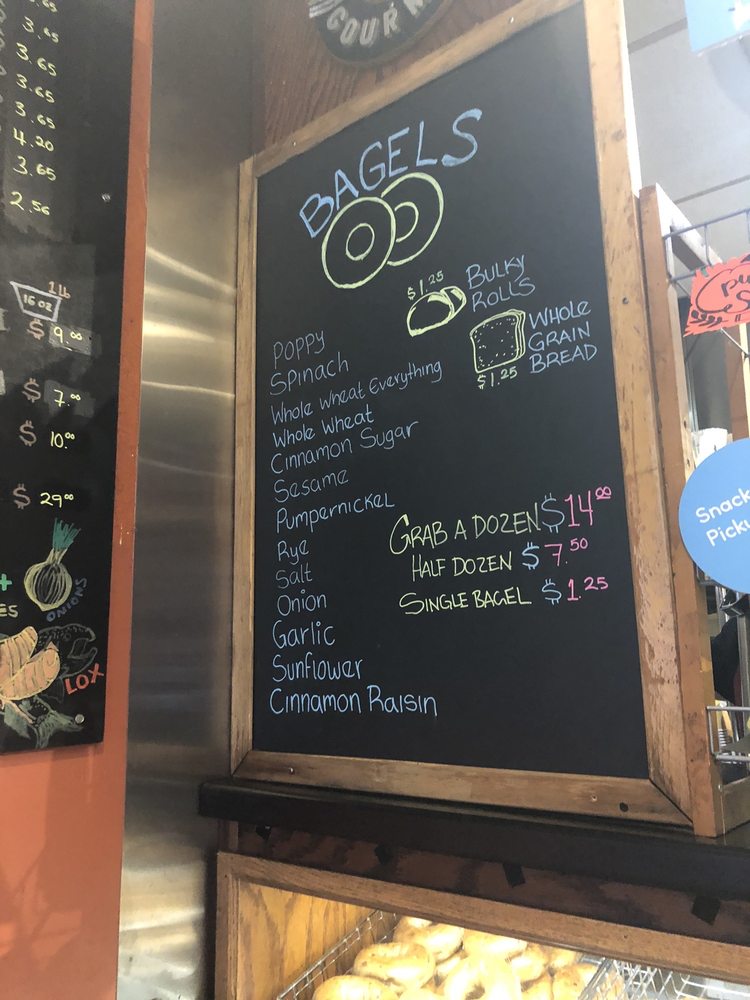 3.65
3.65
3.65
3.65
4.20
3.65
2.56
1lb
16 oz
$ 9.00
$ 7.00
$ 10.00
$ 29.00
ONIONS
LOX
BAGELS
$1.25 BULKY
ROLLS
WHOLE
GRAIN
BREAD
$1.25
POPPY
Spinach
Whole Wheat Everything
Whole Wheat
Cinnamon Sugar
Sesame
Pumpernickel
Rye
Salt
Onion
Garlic
Sunflower
Cinnamon Raisin
GRAB A DOZEN $14.00
HALF DOZEN $7.50
SINGLE BAGEL $1.25
Snack